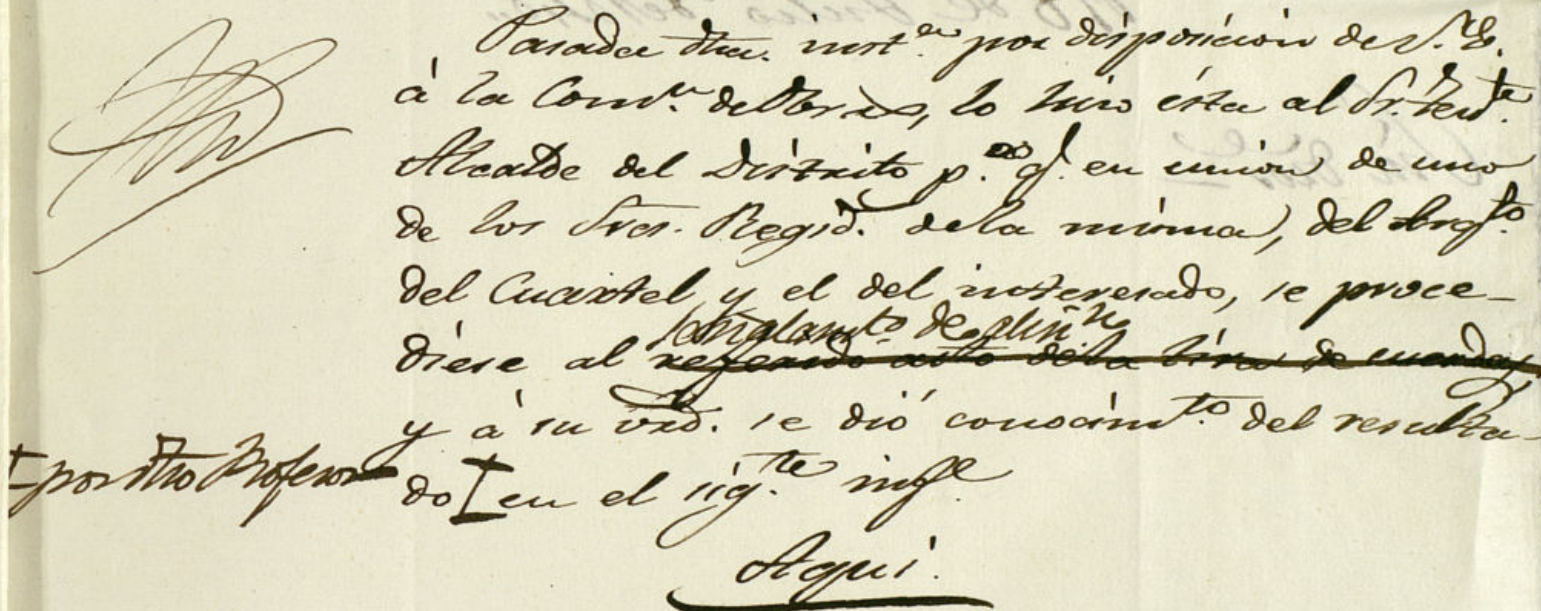 Pasada dha. inst.ª por disposicion de S.E.
á la Com.ⁿ de Obras, lo hizo ésta al Sr. Ten.te
Alcalde del Distrito p.ª q.e en union de uno
de los Sres. Regid.s de la misma, del Arq.to
del Cuartel y el del interesado, se proce-
diese al
señalam.to de alin.n
referido acto de la tira de cuerdas,
y á su vrd. se dió conocim.to del resulta-
por dho Profesor
do en el sig.te inf.e
Aqui.